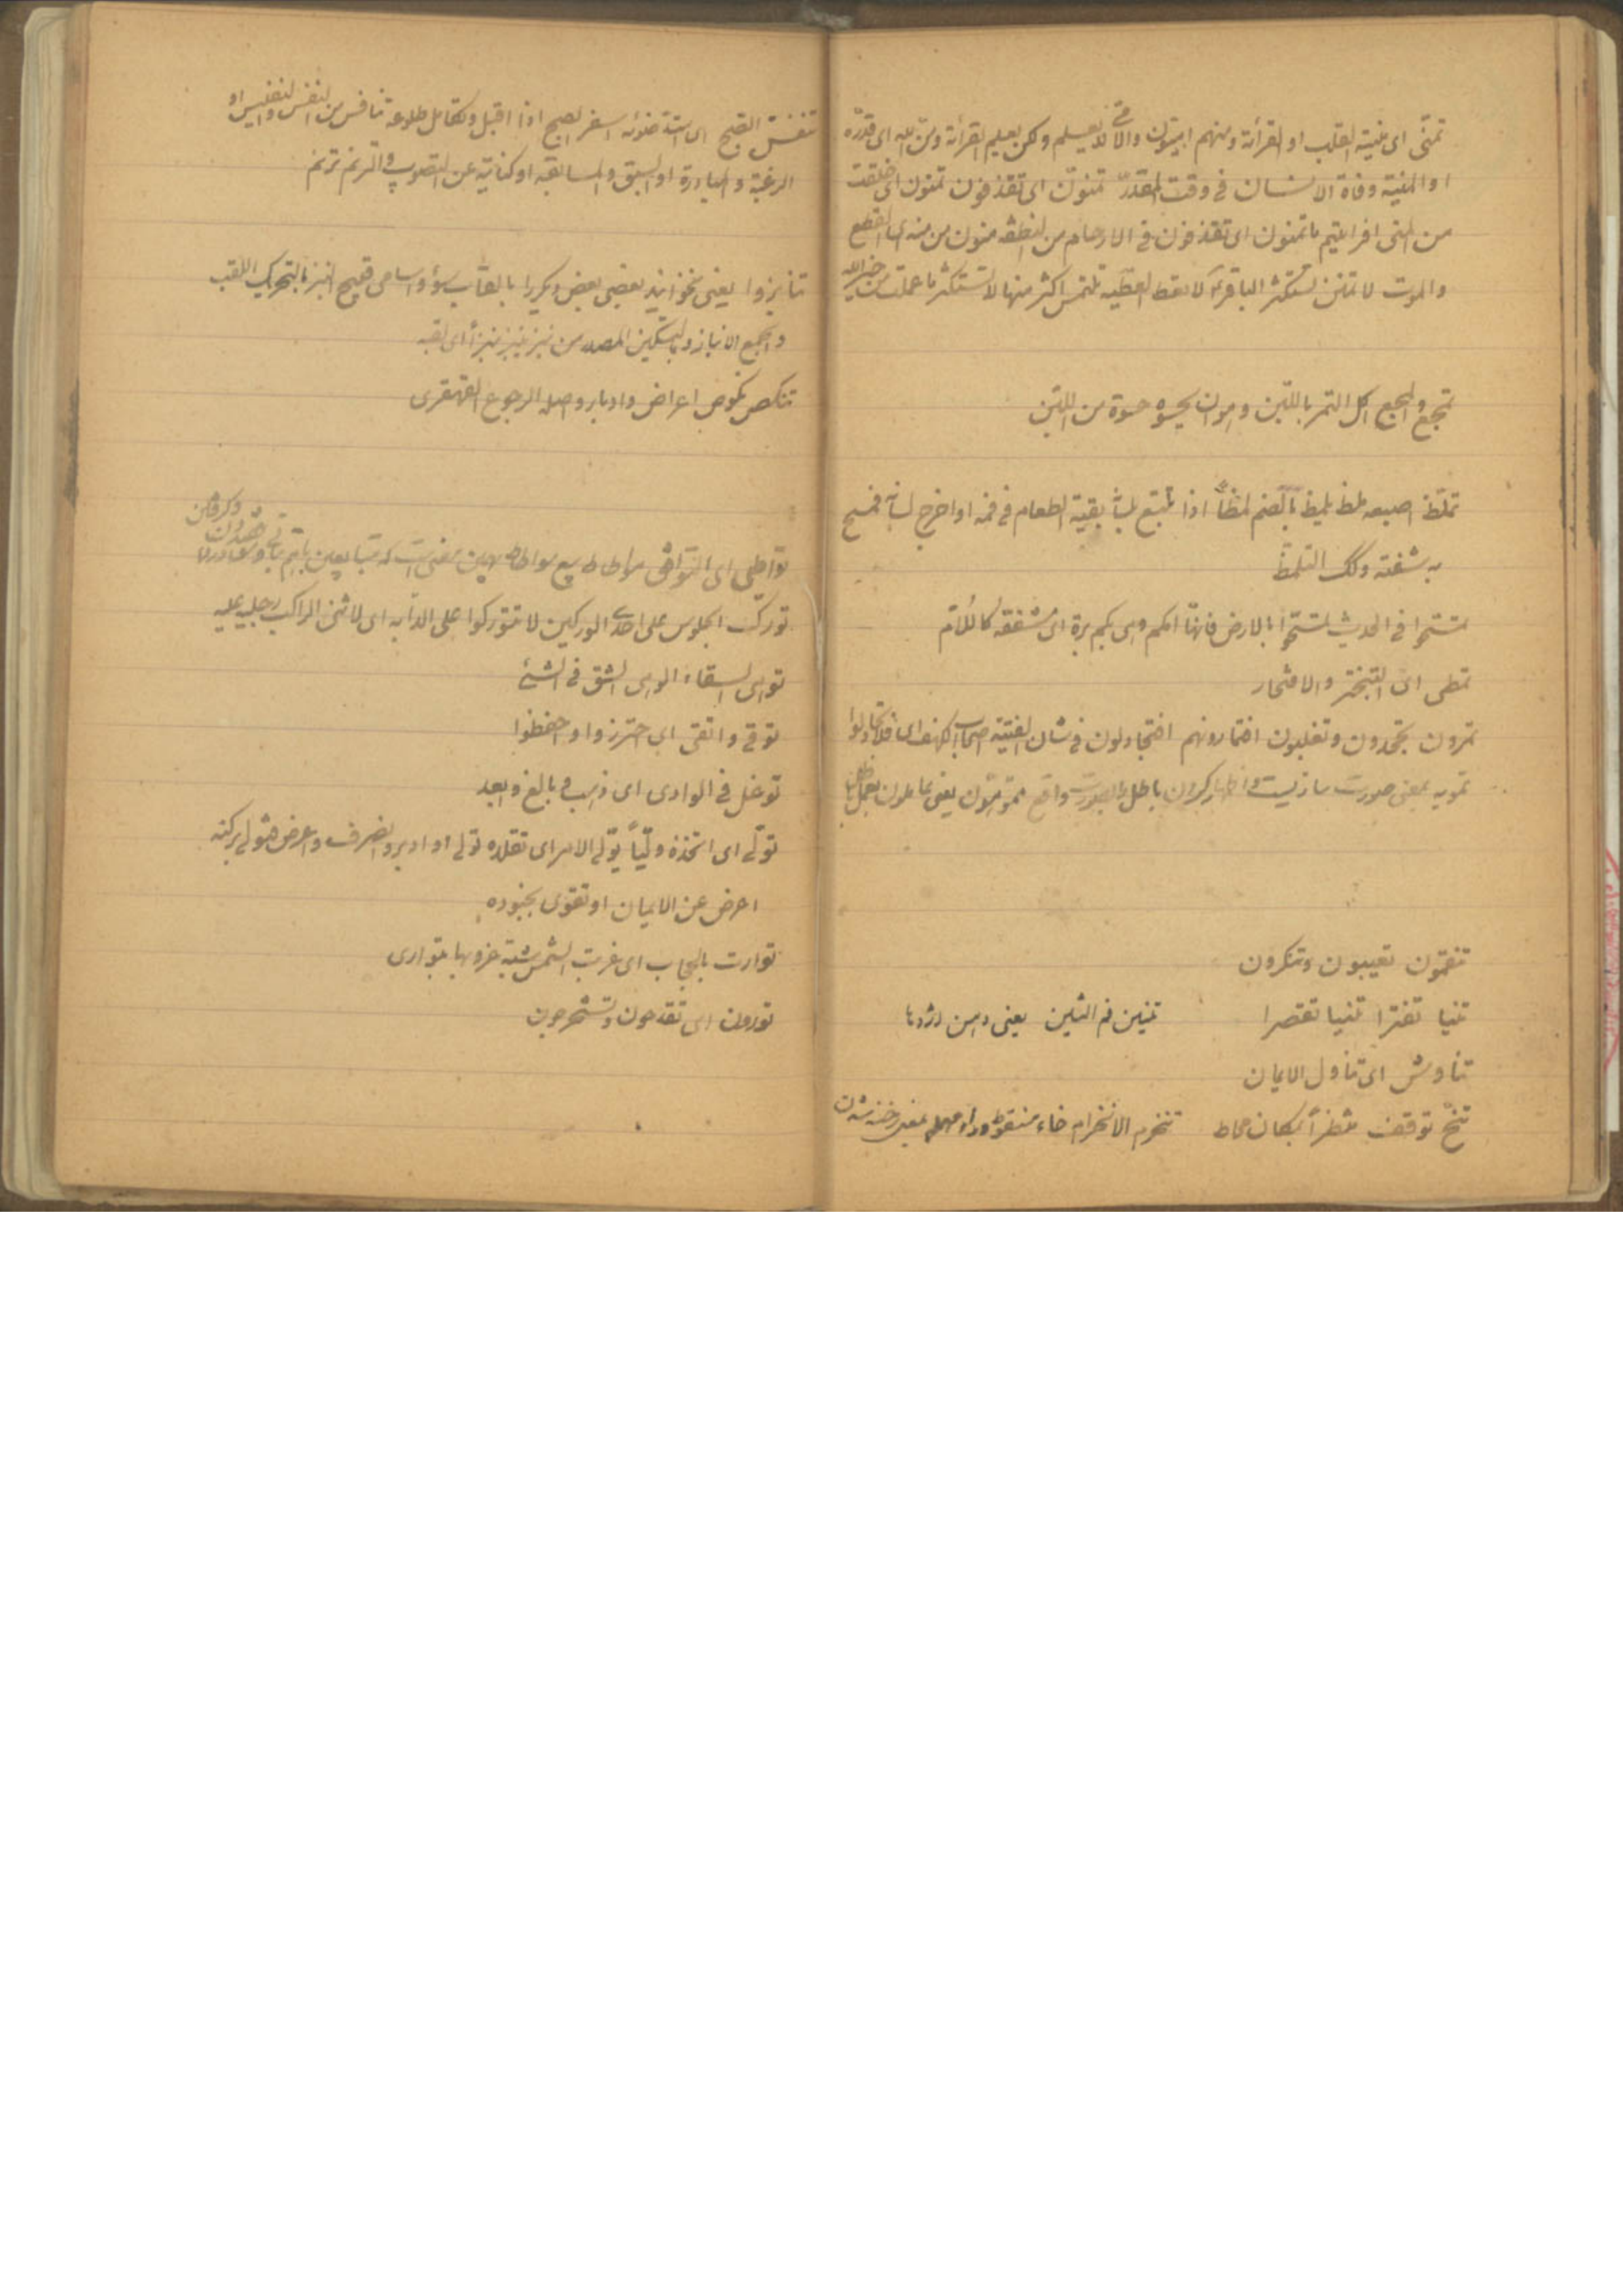 تمنّی ای منیة القلب او القرأتة ومنهم امیّون والأمّی لا یعلم ولکن یعلم القرأتة ومنّ الله ای قدّره
او المنیة وفاة الانسان فی وقت المقدّر تمنون ای تقذفون تمنون ای خلقت
من المنی افرایتم ما تمنون ای تقذفون فی الارحام من النطفه ممنون من منه ای القطع
والموت لا تمنن تستکثر الباقرؑ لا تعط العطیه تلتمس اکثر منها لا تستکثر ما عملت من خیر الله
تمجع والمجع اکل التمر باللبن وهوان یحسو حسوة من اللبن
تملّظ اصبعه لمظ یلمظ بالضم لمظاً اذا تتبع بلسانه بقیة الطعام فی فمه او اخرج لسانه فمسح
به شفته وکذلک التلمظ
تمسّحوا فی الحدیث تمسّحوا بالارض فانها امکم وهی بکم برة ای مشفقه کالامّ
تمطی ای التبختر والافتخار
تمرون تجحدون وتغلبون افتمارونهم افتجادلون فی شان الفتیة اصحاب الکهف ای فلا تجادلوا
تمویه بمعنی صورت سازیست و اظهار کردن باطل بصورت واقع مموّهون یعنی
تنقمون تعیبون وتنکرون
تنیا تفترا تنیا تقصرا تنین فم التنین یعنی دهن اژدها
تناوش ای تناول الایمان
تنحّ توقف تنخرم الانخرام خاء منقوطه وراء مهمله بمعنی رخنه شدن
تنفّس الصبح ای اشتد ضوئه اسفر الصبح اذا اقبل وتکامل طلوعه تنافس من النفس والنفیس او
الرغبة والمبادرة او السبق والمسابقه او کنایة عن التصویب والترنم ترنم
تنابزوا یعنی نخوانید بعضی بعض دیگر را بالقاب سوء واسامی قبیح النبز بالتحریک اللقب
والجمع الانباز وبالتسکین المصدر من نبز ینبز نبزاً ای لقبه
تنکص نکوص اعراض وادبار واصله الرجوع القهقری
تواطی ای التوافق
تورک الجلوس علی احدی الورکین لا تتورکوا علی الدابه ای لا تثنی الراکب رجلیه علیه
توهی السقاء الوهی الشق فی الشیٔ
توقی واتقی ای احترزوا واحفظوا
توغل فی الوادی ای ذهب وبالغ وابعد
تولّی ای اتخذه ولیّاً تولّی الامر ای تقلده تولی او ادبر وانصرف واعرض فتولی برکنه
اعرض عن الایمان او تقوی بجنوده
توارت بالحجاب ای غربت الشمس شبّه غروبها بتواری
تورون ای تقدحون وتستخرجون